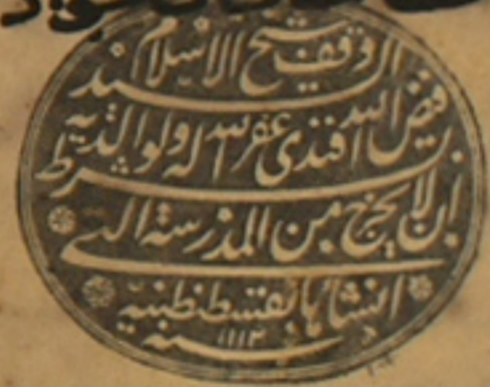 وقف شيخ الاسلام
السيد
فيض الله افندى غفر الله له ولوالديه
بشرط
ان لا يخرج من المدرسة التى
انشاها بقسطنطنية
سنه ١١١٢